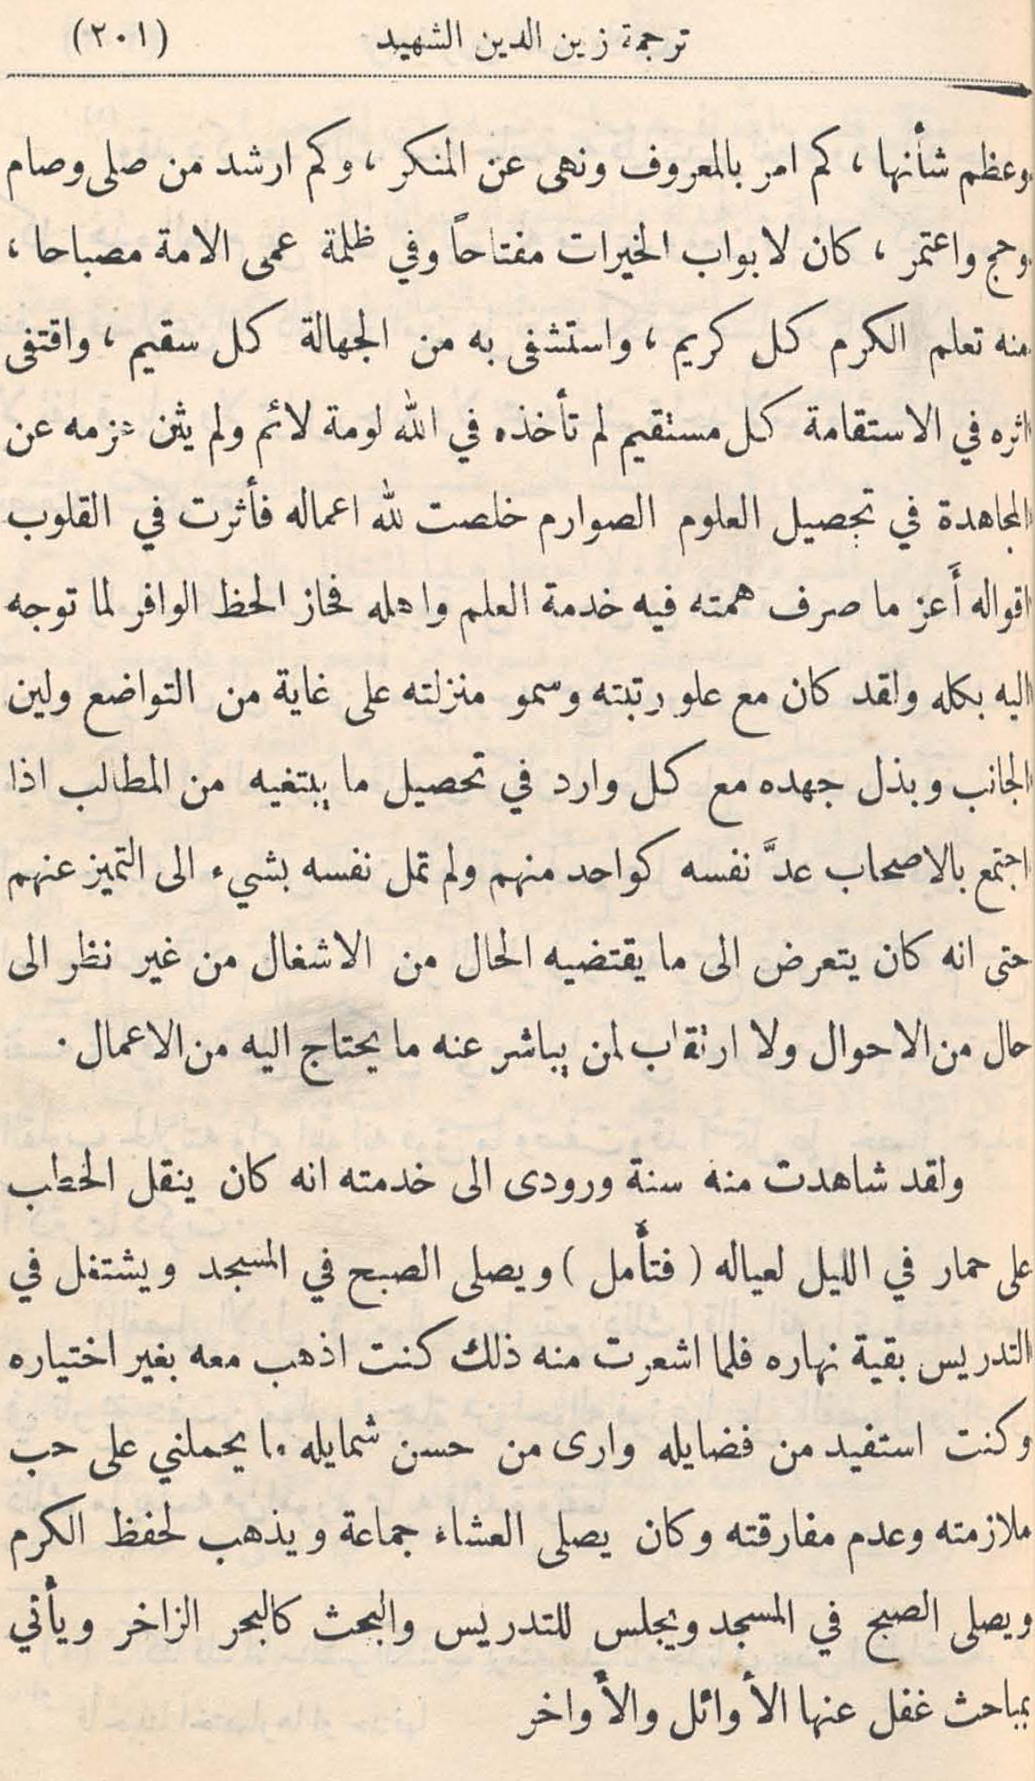 ترجمة زين الدين الشهيد (٢٠١)
وعظم شأنها ، كم امر بالمعروف ونهى عن المنكر ، وكم ارشد من صلى وصام
وحج واعتمر ، كان لابواب الخيرات مفتاحاً وفي ظلمة عمى الامة مصباحا ،
منه تعلم الكرم كل كريم ، واستشفى به من الجهالة كل سقيم ، واقتفى
اثره في الاستقامة كل مستقيم لم تأخذه في الله لومة لائم ولم يثن عزمه عن
المجاهدة في تحصيل العلوم الصوارم خلصت لله اعماله فأثرت في القلوب
اقواله أَعز ما صرف همته فيه خدمة العلم واهله فحاز الحظ الوافر لما توجه
اليه بكله ولقد كان مع علو رتبته وسمو منزلته على غاية من التواضع ولين
الجانب وبذل جهده مع كل وارد في تحصيل ما يبتغيه من المطالب اذا
اجتمع بالاصحاب عدَّ نفسه كواحد منهم ولم تمل نفسه بشيء الى التميز عنهم
حتى انه كان يتعرض الى ما يقتضيه الحال من الاشغال من غير نظر الى
حال من الاحوال ولا ارتقاب لمن يباشر عنه ما يحتاج اليه من الاعمال .
ولقد شاهدت منه سنة ورودى الى خدمته انه كان ينقل الحطب
على حمار في الليل لعياله ( فتأمل ) ويصلى الصبح في المسجد ويشتغل في
التدريس بقية نهاره فلما اشعرت منه ذلك كنت اذهب معه بغير اختياره
وكنت استفيد من فضايله وارى من حسن شمايله ما يحملني على حب
ملازمته وعدم مفارقته وكان يصلى العشاء جماعة ويذهب لحفظ الكرم
ويصلى الصبح في المسجد ويجلس للتدريس والبحث كالبحر الزاخر ويأتي
بمباحث غفل عنها الأوائل والأواخر